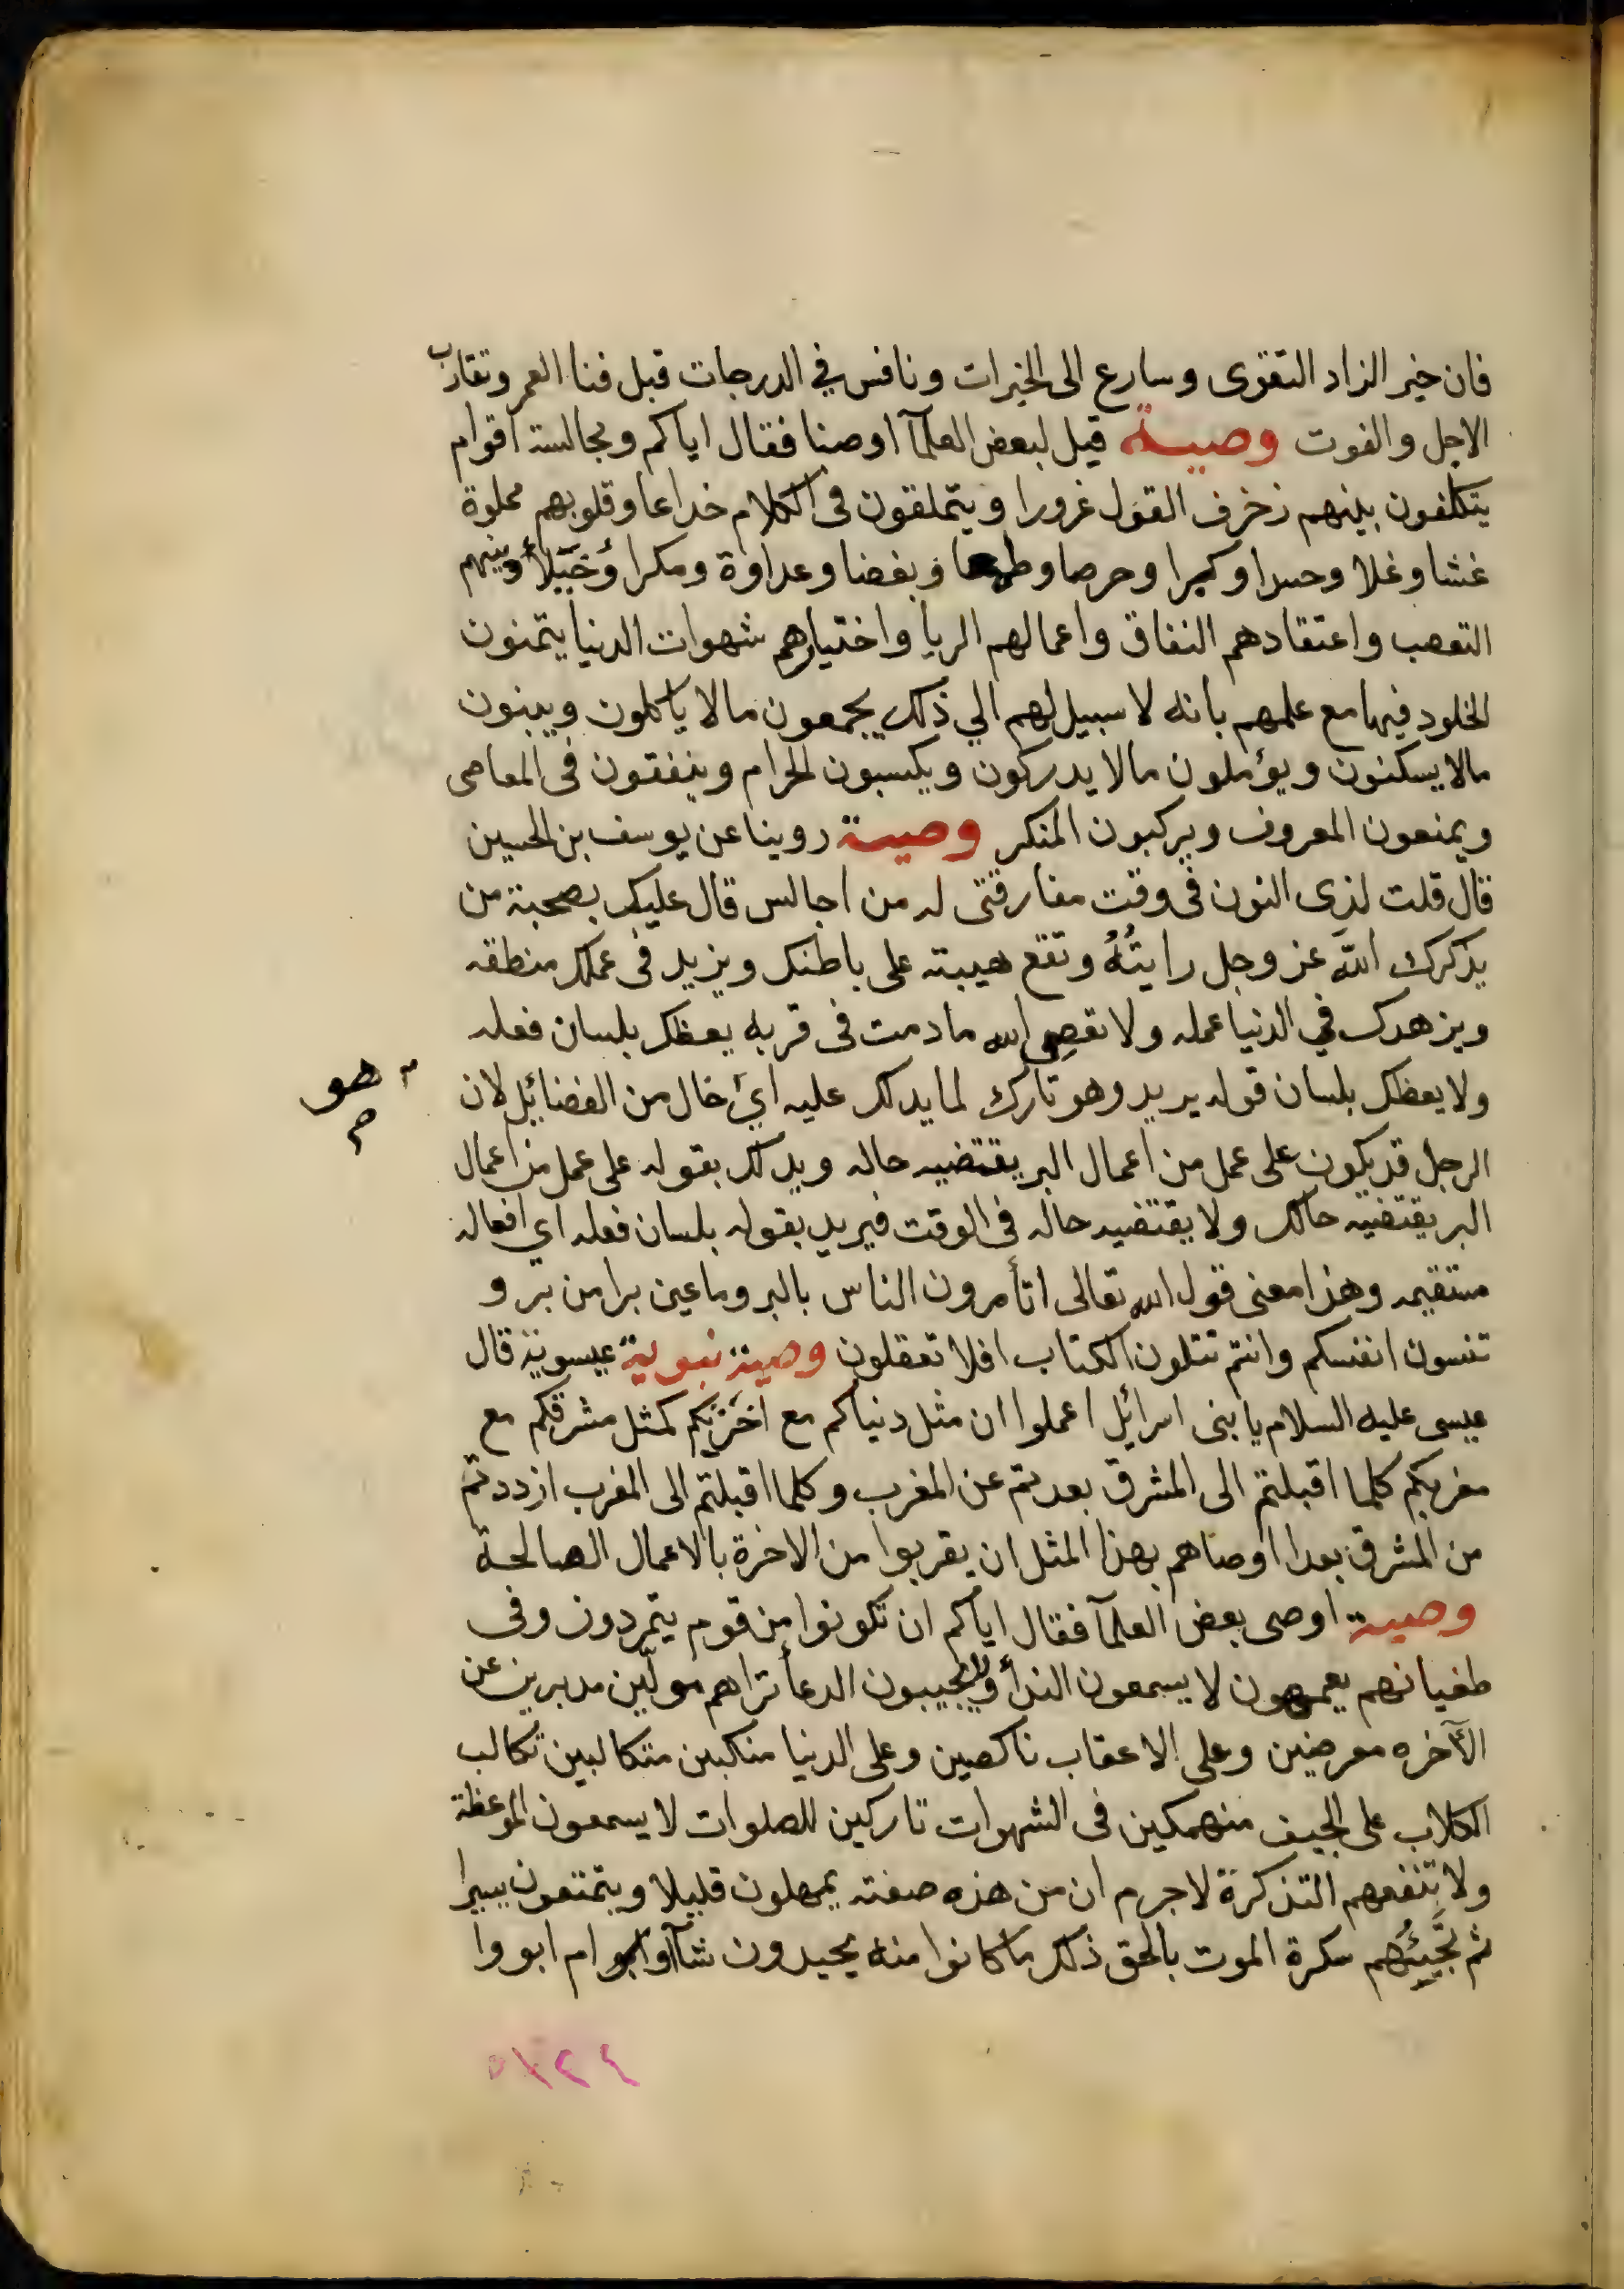 فان خير الزاد التقوى وسارع الى الخيرات ونافس في الدرجات قبل فنا العمر وتقارب
الاجل والفوت وصية قيل لبعض العلمآ اوصنا فقال اياكم ومجالسة اقوام
يتكلفون بينهم زخرف القول غرورا ويتملقون فى الكلام خداعا وقلوبهم مملوة
غشا وغلا وحسدا وكبرا وحرصا وطمعا وبغضا وعداوة ومكرا وختلا دينهم
التعصب واعتقادهم النفاق واعمالهم الريا واختيارهم شهوات الدنيا يتمنون
الخلود فيها مع علمهم بانه لا سبيل لهم الي ذلك يجمعون مالا ياكلون ويبنون
مالا يسكنون ويؤملون مالا يدركون ويكسبون الحرام وينفقون فى المعاصى
ويمنعون المعروف ويركبون المنكر وصية روينا عن يوسف بن الحسين
قال قلت لذى النون فى وقت مفارقتى له من اجالس قال عليك بصحبة من
يذكرك الله عز وجل رايته وتقع هيبته على باطنك ويزيد فى عملك منطقه
ويزهدك في الدنيا عمله ولا تعصي الله مادمت فى قربه يعظك بلسان فعله
ولا يعظك بلسان قوله يريد وهو تارك لما يدلك عليه اي خال من الفضائيل لان
هو
الرجل قد يكون على عمل من اعمال البر يقتضيه حاله ويدلك بقوله على عمل من اعمال
البر يقتضيه حالك ولا يقتضيه حاله فى الوقت فيريد بقوله بلسان فعله اي افعاله
مستقيمه وهذا معنى قول الله تعالى اتأمرون الناس بالبر وما عين برا من بر و
تنسون انفسكم وانتم تتلون الكتاب افلا تعقلون وصية نبوية عيسوية قال
عيسى عليه السلام يا بنى اسرائيل اعملوا ان مثل دنياكم مع اخرتكم كمثل مشرقكم مع
مغربكم كلما اقبلتم الى المشرق بعدتم عن المغرب وكلما اقبلتم الى المغرب ازددتم
من المشرق بعدا اوصاهم بهذا المثل ان يقربوا من الاخرة بالاعمال الصالحة
وصية اوصى بعض العلمآ فقال اياكم ان تكونوا من قوم يتمردون وفى
طغيانهم يعمهون لا يسمعون الندأ ولا يجيبون الدعأ تراهم مولّين مدبرين عن
الآخره معرضين وعلى الاعقاب ناكصين وعلى الدنيا منكبين متكالبين تكالب
الكلاب على الجيف منهمكين فى الشهوات تاركين للصلوات لا يسمعون الموعظة
ولا تنفعهم التذكرة لاجرم ان من هذه صفته يمهلون قليلا ويتمتعون يسيرا
ثم تجيئهم سكرة الموت بالحق ذلك ما كانوا منه يحيدون شآوا ام ابووا